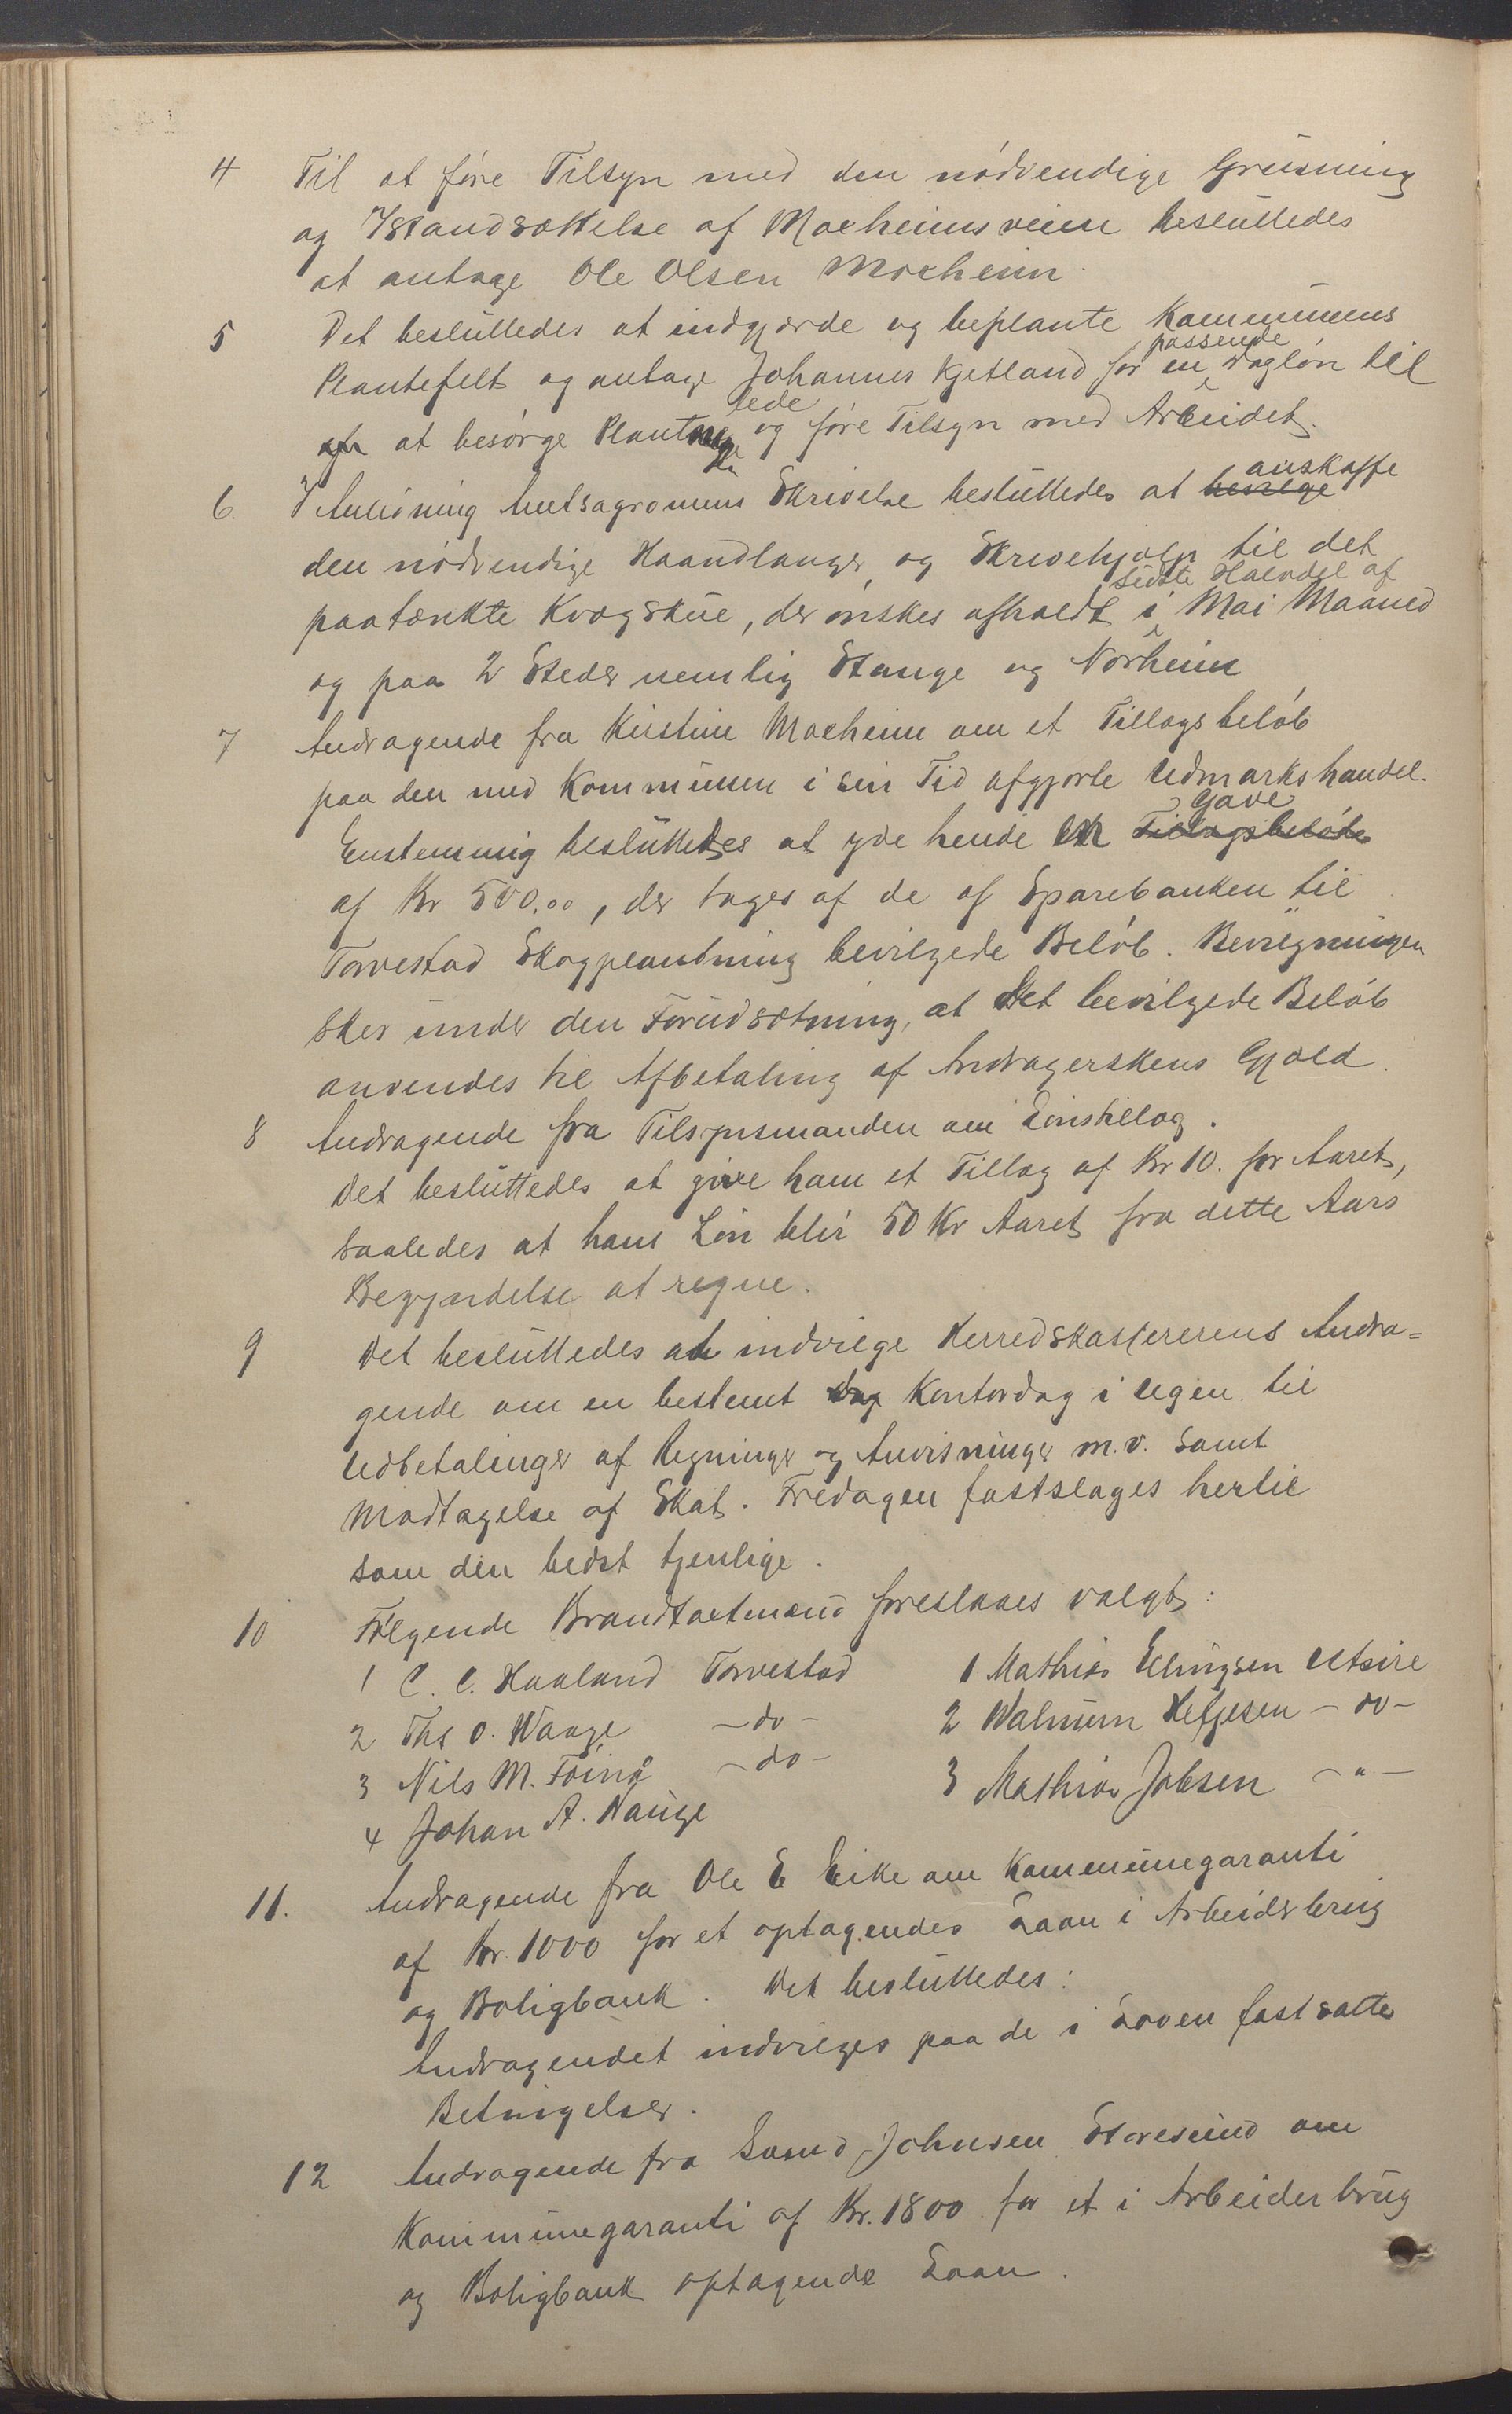 4 Til at føre Tilsyn med den nødvendige Grusning
og Istandsættelse af Moeheimsveien besluttedes
at antage Ole Olsen Moeheim.
5 Det besluttedes at indgjærde og beplante Kommunens
Plantefelt og antage Johannes Kjetland for en passende Dagløn til
at besørge og føre Tilsyn med Arbeidet.
6 I Anledning Amtsagronomens Skrivelse besluttedes at bevilge anskaffe
den nødvendige Haandlanger og Skrivehjælp til det
paatænkte Kvægskue, der ønskes afholdt i sidste Halvdel af Mai Maaned
og paa 2 Steder nemlig Stange og Norheim
7 Andragende fra Kirstine Moeheim om et Tillægsbeløb
paa den med Kommunen i sin Tid afgjorte Udmarkshandel.
Enstemmig besluttedes at yde hende en Tillægsbeløb Gave
af Kr 500.00, der tages af de af Sparebanken til
Torvestad Skogplantning bevilgede Beløb. Bevilgningen
sker under den Forudsætning, at det bevilgede Beløb
anvendes til Afbetaling af Andragerskens Gjæld.
8 Andragende fra Tilsynsmanden om Lønstillæg.
Det besluttedes at give ham et Tillæg af Kr 10. for Aaret,
saaledes at hans Løn blir 50 Kr Aaret fra dette Aars
Begyndelse at regne.
9 Det besluttedes at indvilge Herredskassererens Andra=
gende om en bestemt Dag Kontordag i Ugen til
Udbetalinger af Regninger og Anvisninger m.v. samt
Modtagelse af Skat. Fredagen fastslages hertil
som den bedst tjenlige.
10 Følgende Brandtaxtmænd foreslaaes valgt:
1 C. C. Haaland Torvestad 1 Mathias Ellingsen Utsire
2 Ths O. Waage - do - 2 Walnum Helgesen - do -
3 Nils M. Føinå - do - 3 Mathias Jobsen - " -
4 Johan A. Hauge
11. Andragende fra Ole E Eike om Kommunegaranti
af Kr. 1000 for et optagendes Laan i Arbeiderbrug
og Boligbank. Det besluttedes:
Andragendet indvilges paa de i Loven fastsatte
Betingelser.
12 Andragende fra Johnsen Storesund om
Kommunegaranti af Kr. 1800 for et i Arbeiderbrug
og Boligbank optagende Laan.